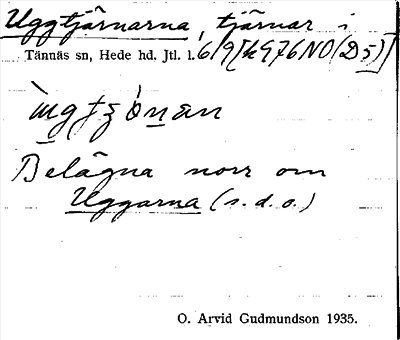 Uggtjärnarna, tjärnar i
Tännäs sn, Hede hd. Jtl. l. 6/9 [k976NO(D5)]
Belägna norr om
Uggarna (s.d.o.)
O. Arvid Gudmundson 1935.